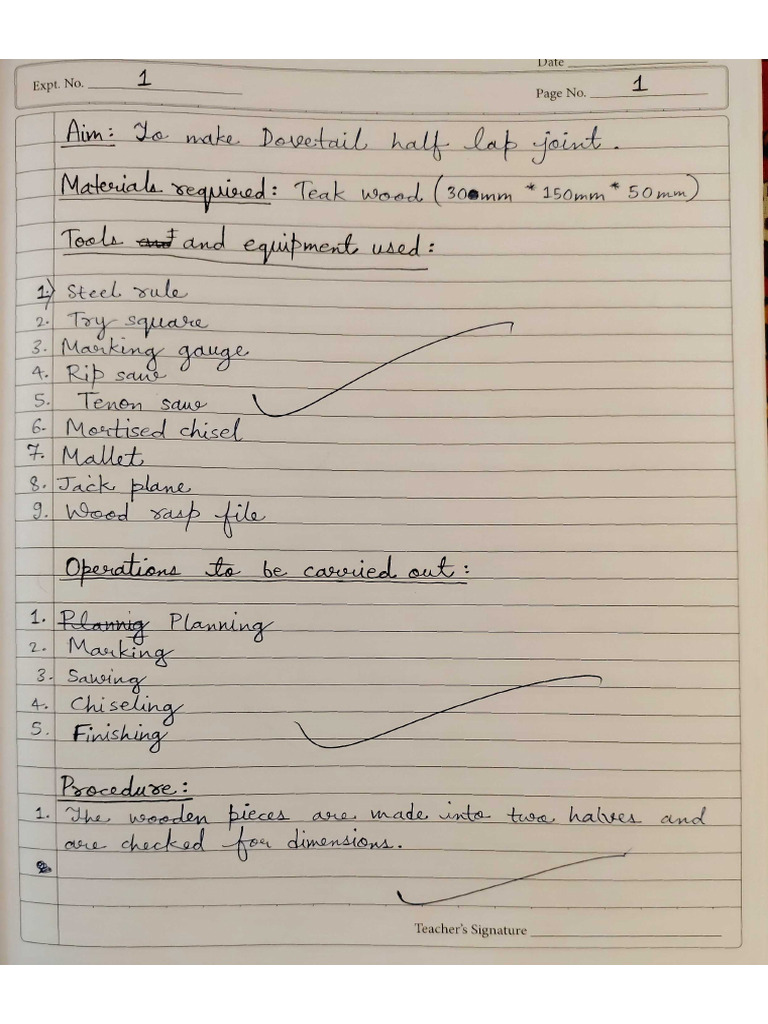 Date
Expt. No. 1
Page No. 1
Aim: To make Dovetail half lap joint.
Materials required: Teak wood (300mm * 150mm * 50mm)
Tools and and equipment used:
1.) Steel rule
2. Try square
3. Marking gauge
4. Rip saw
5. Tenon saw
6. Mortised chisel
7. Mallet
8. Jack plane
9. Wood rasp file
Operations to be carried out:
1. Plannig Planning
2. Marking
3. Sawing
4. Chiseling
5. Finishing
Procedure:
1. The wooden pieces are made into two halves and
are checked for dimensions.
2.
Teacher's Signature